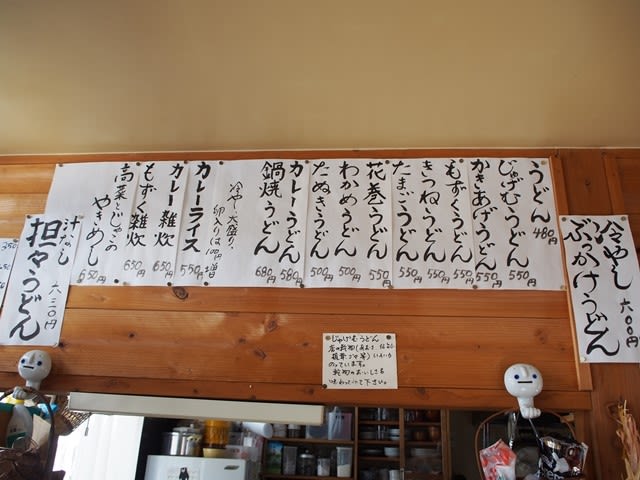 冷やし
ぶっかけうどん
六〇〇円
うどん 480円
じゅげむうどん 550円
かきあげうどん 550円
もずくうどん 550円
きつねうどん 550円
たまごうどん 550円
花巻うどん 550円
わかめうどん 500円
たぬきうどん 500円
カレーうどん 580円
鍋焼うどん 680円
冷やし、大盛り、
卵入りは100円増
カレーライス 550円
カレー雑炊 650円
もずく雑炊 650円
高菜とじゃこの
やきめし 650円
汁なし
担々うどん
六三〇円
350
じゅげむうどん
のっています。